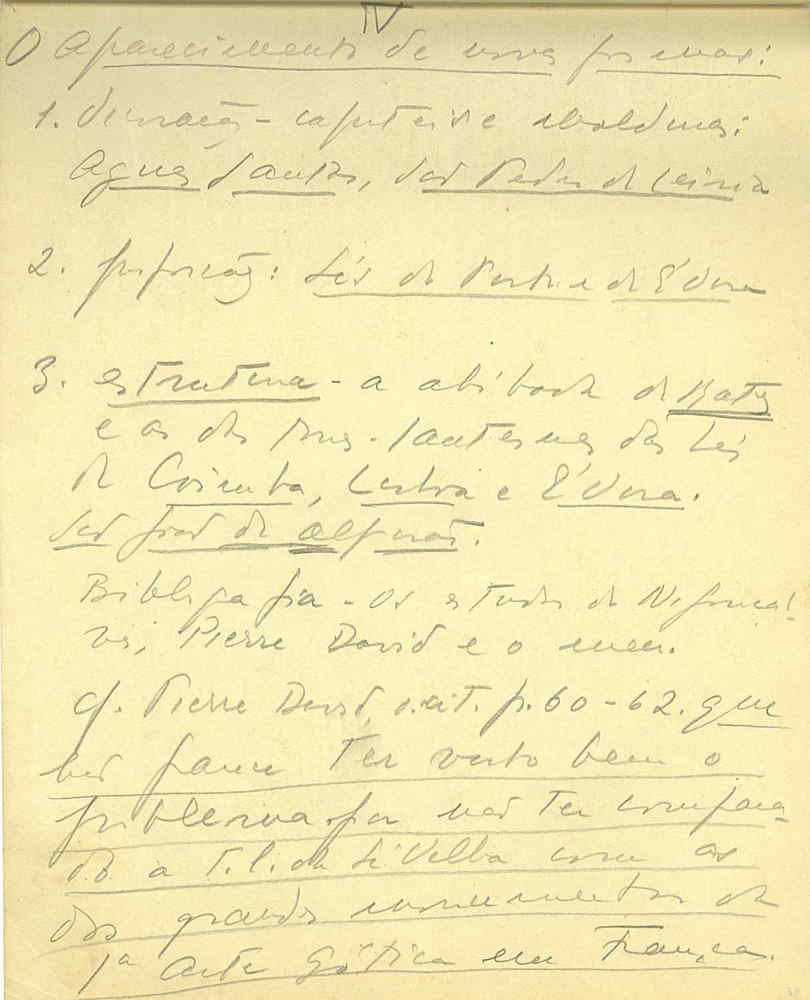 IV
O Aparecimento de novas formas:
1. Decoração - capiteis e molduras:
Aguas Santas, São Pedro de Leiria
2. proporção: Sés do Porto e de Évora
3. estrutura - a abóbada de
e as das torres-lanternas das Sés
de Coimbra, Lisboa e Évora.
São João de Alporão.
Bibliografia - Os estudos de
Pierre David e o meu.
cf. Pierre David, o. cit. p. 60-62. que
não parece ter visto bem o
problema por não ter compara-
do a T. l. da Sé Velha com as
dos grandes monumentos da
1ª Arte Gótica em França.